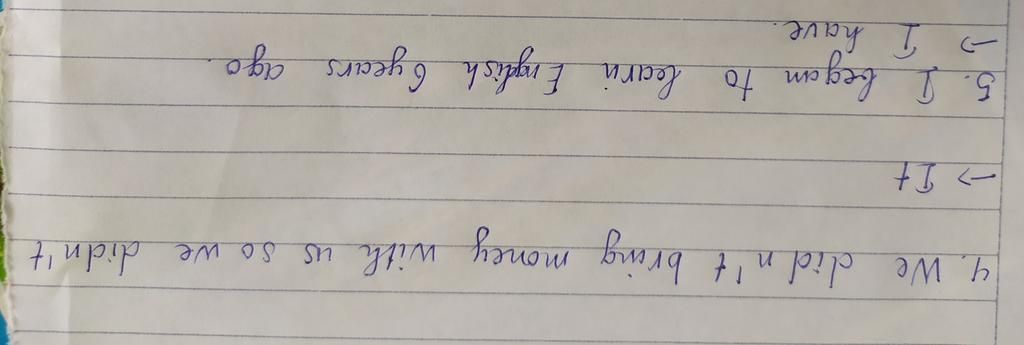 4. We didn't bring money with us so we didn't
→ It
5. I began to learn English 6 years ago.
→ I have